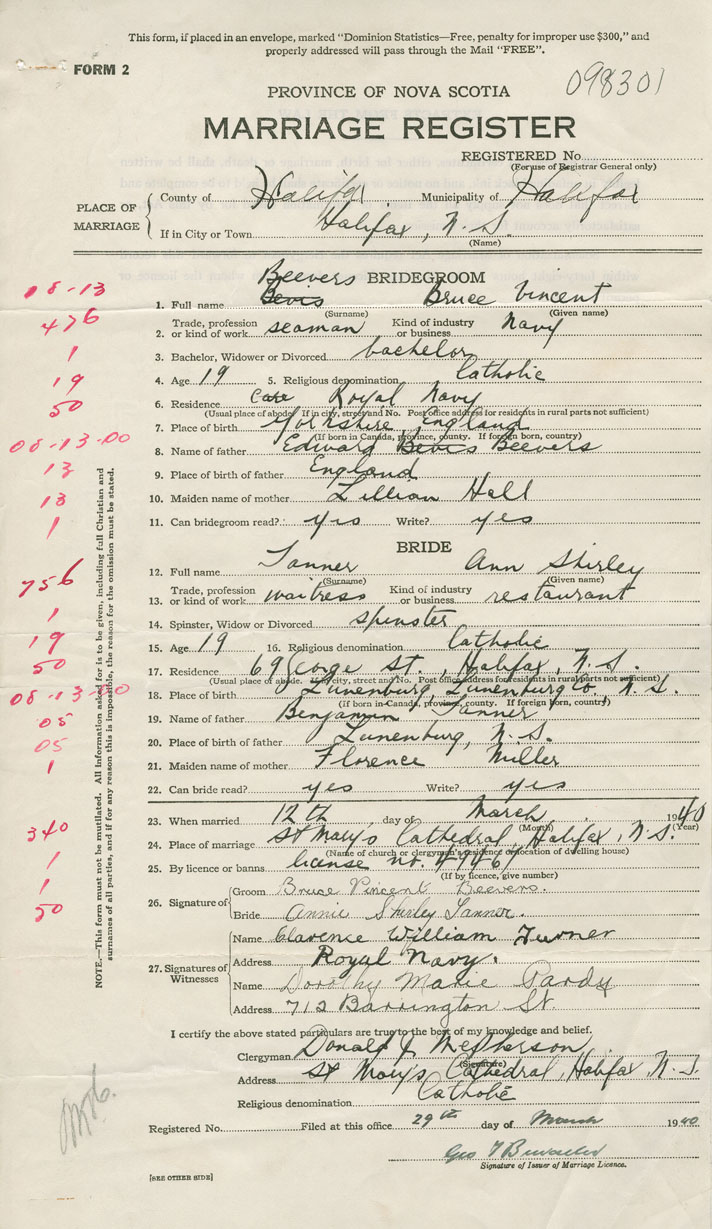 This form, if placed in an envelope, marked "Dominion Statistics—Free, penalty for improper use $300," and
properly addressed will pass through the Mail "FREE".
FORM 2
098301
PROVINCE OF NOVA SCOTIA
MARRIAGE REGISTER
REGISTERED No.
(For use of Registrar General only)
PLACE OF MARRIAGE
County of Halifax Municipality of Halifax
If in City or Town Halifax, N.S.
(Name)
Beevers
BRIDEGROOM
08-13
1. Full name Bevis Bruce Vincent
(Surname) (Given name)
476
2. Trade, profession or kind of work seaman Kind of industry or business Navy
1
3. Bachelor, Widower or Divorced bachelor
19
4. Age 19 5. Religious denomination Catholic
50
6. Residence Care Royal Navy
(Usual place of abode. If in city, street and No. Post office address for residents in rural parts not sufficient)
08-13-00
7. Place of birth Yorkshire, England
(If born in Canada, province, county. If foreign born, country)
8. Name of father Edward Bevis Beevers
13
9. Place of birth of father England
13
10. Maiden name of mother Lillian Hall
1
11. Can bridegroom read? yes Write? yes
BRIDE
12. Full name Tanner Ann Shirley
(Surname) (Given name)
756
13. Trade, profession or kind of work waitress Kind of industry or business restaurant
1
14. Spinster, Widow or Divorced spinster
19
15. Age 19 16. Religious denomination Catholic
50
17. Residence 69 George St., Halifax, N.S.
(Usual place of abode. If in city, street and No. Post office address for residents in rural parts not sufficient)
08-13-00
18. Place of birth Lunenburg, Lunenburg Co, N.S.
(If born in Canada, province, county. If foreign born, country)
05
19. Name of father Benjamin Tanner
05
20. Place of birth of father Lunenburg, N.S.
1
21. Maiden name of mother Florence Miller
22. Can bride read? yes Write? yes
23. When married 12th day of March 1940
(Month) (Year)
340
24. Place of marriage St Mary's Cathedral, Halifax, N.S.
(Name of church or clergyman's residence or location of dwelling house)
1
25. By licence or banns license no.
(If by licence, give number)
1
50
26. Signature of
Groom Bruce Vincent Beevers.
Bride Annie Shirley Tanner.
27. Signatures of Witnesses
Name Clarence William Turner
Address Royal Navy.
Name Dorothy Marie Pardy
Address 712 Barrington St.
I certify the above stated particulars are true to the best of my knowledge and belief.
Clergyman Donald J McPherson
(Signature)
Address St Mary's Cathedral, Halifax, N.S.
Religious denomination Catholic
Registered No. Filed at this office 29th day of March 1940
Geo
Signature of Issuer of Marriage Licence.
[SEE OTHER SIDE]
NOTE.—This form must not be mutilated. All information asked for is to be given, including full Christian and
surnames of all parties, and if for any reason this is impossible, the reason for the omission must be stated.